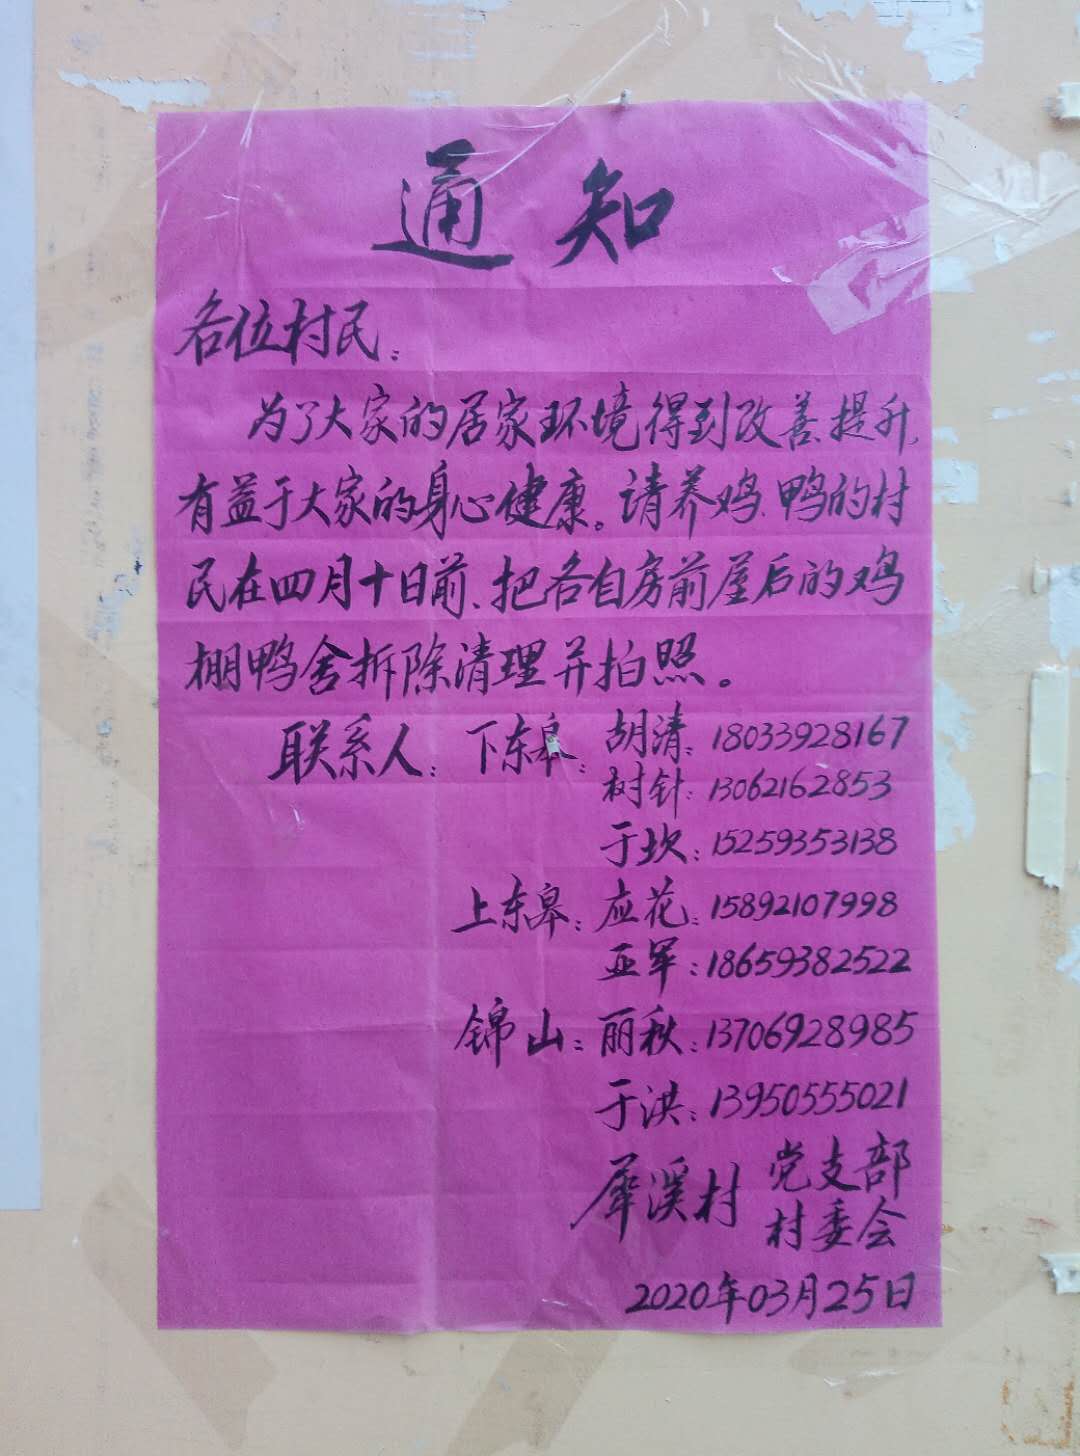 通知
各位村民:
为了大家的居家环境得到改善、提升,
有益于大家的身心健康。请养鸡、鸭的村
民在四月十日前、把各自房前屋后的鸡
棚鸭舍拆除清理并拍照。
联系人: 下东皋: 胡清: 18033928167
树针: 13062162853
于坎: 15259353138
上东皋: 应花: 15892107998
亚军: 18659382522
锦山: 丽秋: 13706928985
于洪: 13950555021
犀溪村 党支部
村委会
2020年03月25日